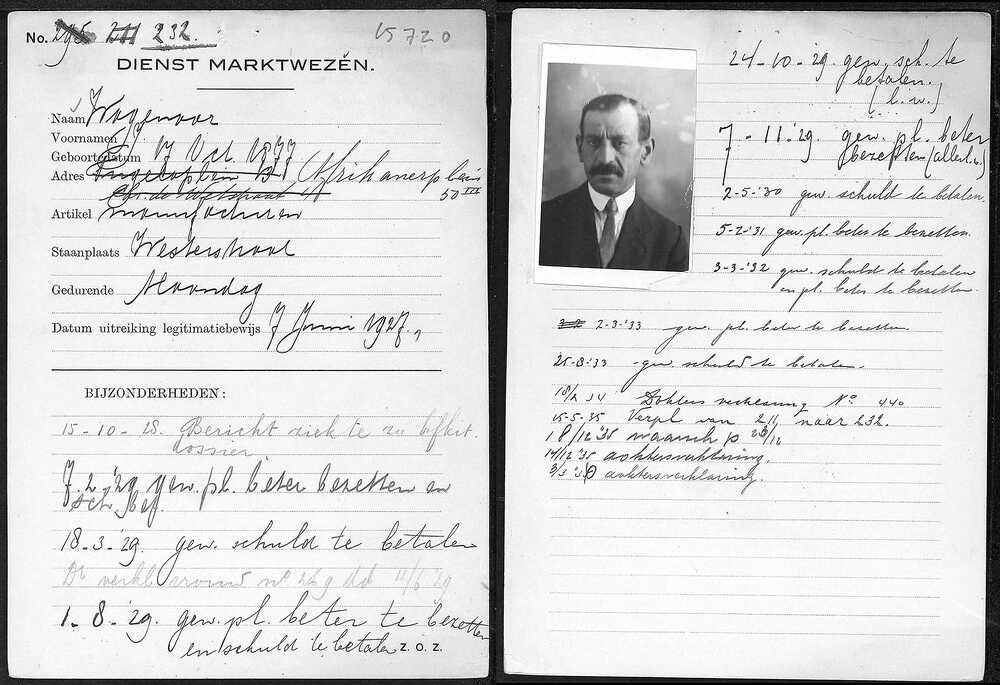 No. 295 211 232. 15720
DIENST MARKTWEZEN.
Naam Wagenaar
Voornamen J
Geboortedatum 17 Oct. 1877
Adres Afrikanerplein
50 III
Artikel manufacturen
Staanplaats Westerstraat
Gedurende Maandag
Datum uitreiking legitimatiebewijs 7 Juni 1927.,
BIJZONDERHEDEN:
15-10-28. Bericht ziekte zie
dossier.
7.2-'29 gew. pl. beter bezetten en
sch. bet.
18-3-'29. gew. schuld te betalen
Dr verkl. vrouw no 269 dd 11/6 '29
1-8-'29. gew. pl. beter te bezetten
en schuld te betalen z.o.z.
24-10-29. gew. sch. te
betalen.
(l.w.)
7-11-'29 gew. pl. beter
bezetten
2-5-'30 gew. schuld te betalen.
5-2-'31 gew. pl. beter te bezetten.
3-3-'32 gew. schuld te betalen
en pl. beter te bezetten.
2-3-'33 gew. pl. beter te bezetten.
25-8-'33 gew. schuld te betalen.
Dokters verklaring No. 440
15-5-'35 Verpl van 211 naar 232.
18/12 '35 waarsch p
19/12 '35 doktersverklaring.
doktersverklaring.